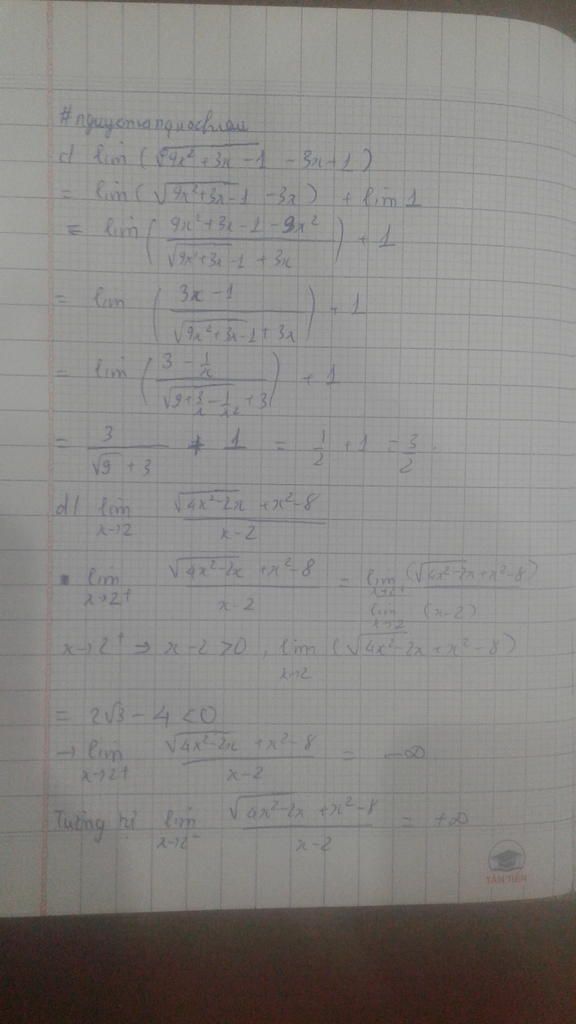 c) lim (√9x²+3x-1 - 3x+1)
= lim ( √9x²+3x-1 - 3x ) + lim 1
= lim ( (9x²+3x-1-9x²) / (√9x²+3x-1 + 3x) ) + 1
= lim ( (3x-1) / (√9x²+3x-1 + 3x) ) + 1
= lim ( (3 - 1/x) / (√9+3/x-1/x² + 3) ) + 1
= 3 / (√9 + 3) + 1 = 1/2 + 1 = 3/2.
d) lim x→2 (√4x²-2x + x²-8) / (x-2)
• lim x→2⁺ (√4x²-2x + x²-8) / (x-2) = lim x→2⁺ (√4x²-2x + x²-8) / lim x→2 (x-2)
x→2⁺ ⇒ x-2>0, lim x→2 (√4x²-2x + x²-8)
= 2√3 - 4 <0
→ lim x→2⁺ (√4x²-2x + x²-8) / (x-2) = -∞
Tương tự lim x→2⁻ (√4x²-2x + x²-8) / (x-2) = +∞
TÂN TIẾN